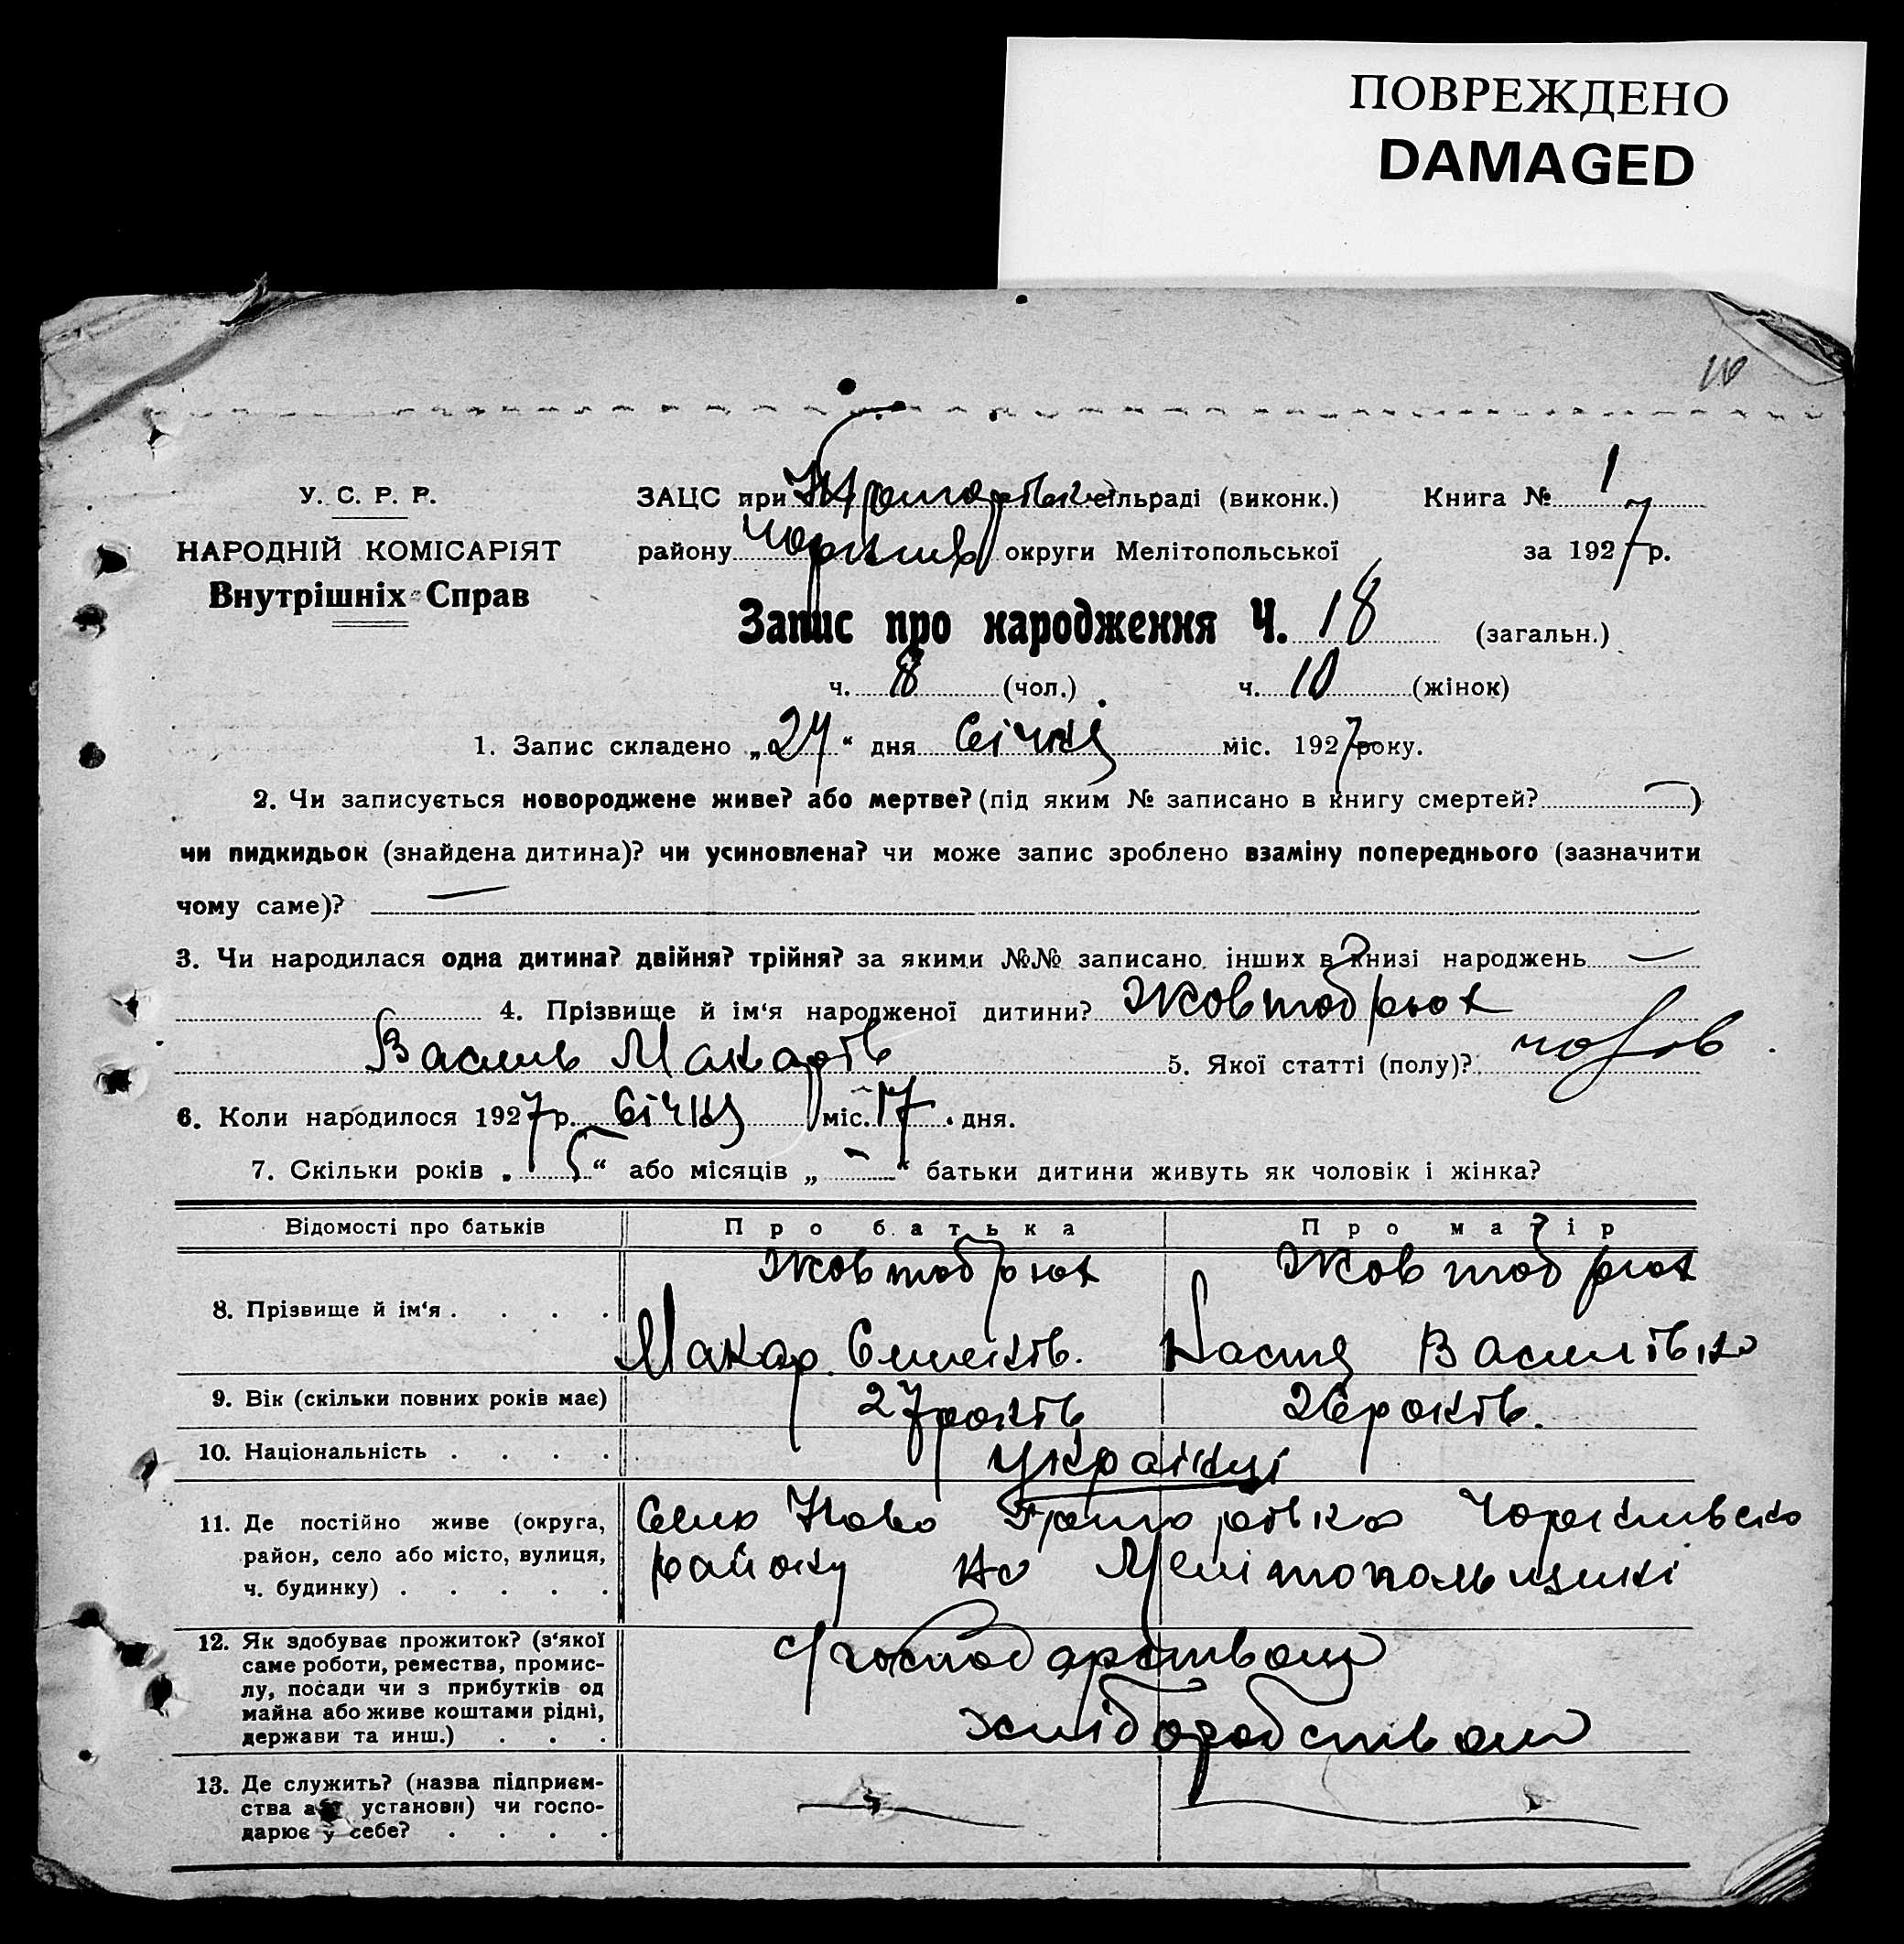 ПОВРЕЖДЕНО
DAMAGED
10
У. С. Р. Р. ЗАЦС при сільраді (виконк.) Книга № 1
НАРОДНІЙ КОМІСАРІЯТ району Чорнив округи Мелітопольської за 1927 р.
Внутрішніх Справ
Запис про народження Ч. 18 (загальн.)
ч. 8 (чол.) ч. 10 (жінок)
1. Запис складено „24“ дня Січня міс. 1927 року.
2. Чи записується новороджене живе? або мертве? (під яким № записано в книгу смертей? —)
чи пидкидьок (знайдена дитина)? чи усиновлена? чи може запис зроблено взаміну попереднього (зазначити
чому саме)? —
3. Чи народилася одна дитина? двійня? трійня? за якими №№ записано інших в книзі народжень —
4. Прізвище й ім‘я народженої дитини? Жовтобрюх
Василь Макарів 5. Якої статті (полу)? чолов.
6. Коли народилося 1927 р. Січня міс. 17 дня.
7. Скільки років „ “ або місяців „ - “ батьки дитини живуть як чоловік і жінка?
Відомості про батьків Про батька Про матір
Жовтобрюх Жовтобрюх
8. Прізвище й ім‘я . . . .
Макар Настя Василівна
9. Вік (скільки повних років має) 27 років 26 років.
10. Національність . . . . Українці
11. Де постійно живе (округа, Село Ново Григорівка Чорнивсько
район, село або місто, вулиця, району на Мелітопольщині
ч. будинку) . . . . .
12. Як здобуває прожиток? (з‘якої с/господарством
саме роботи, ремества, промис-
лу, посади чи з прибутків од
майна або живе коштами рідні, хліборобством
держави та инш.) . . .
13. Де служить? (назва підприєм-
ства або установи) чи госпо- — —
дарює у себе? . . . .